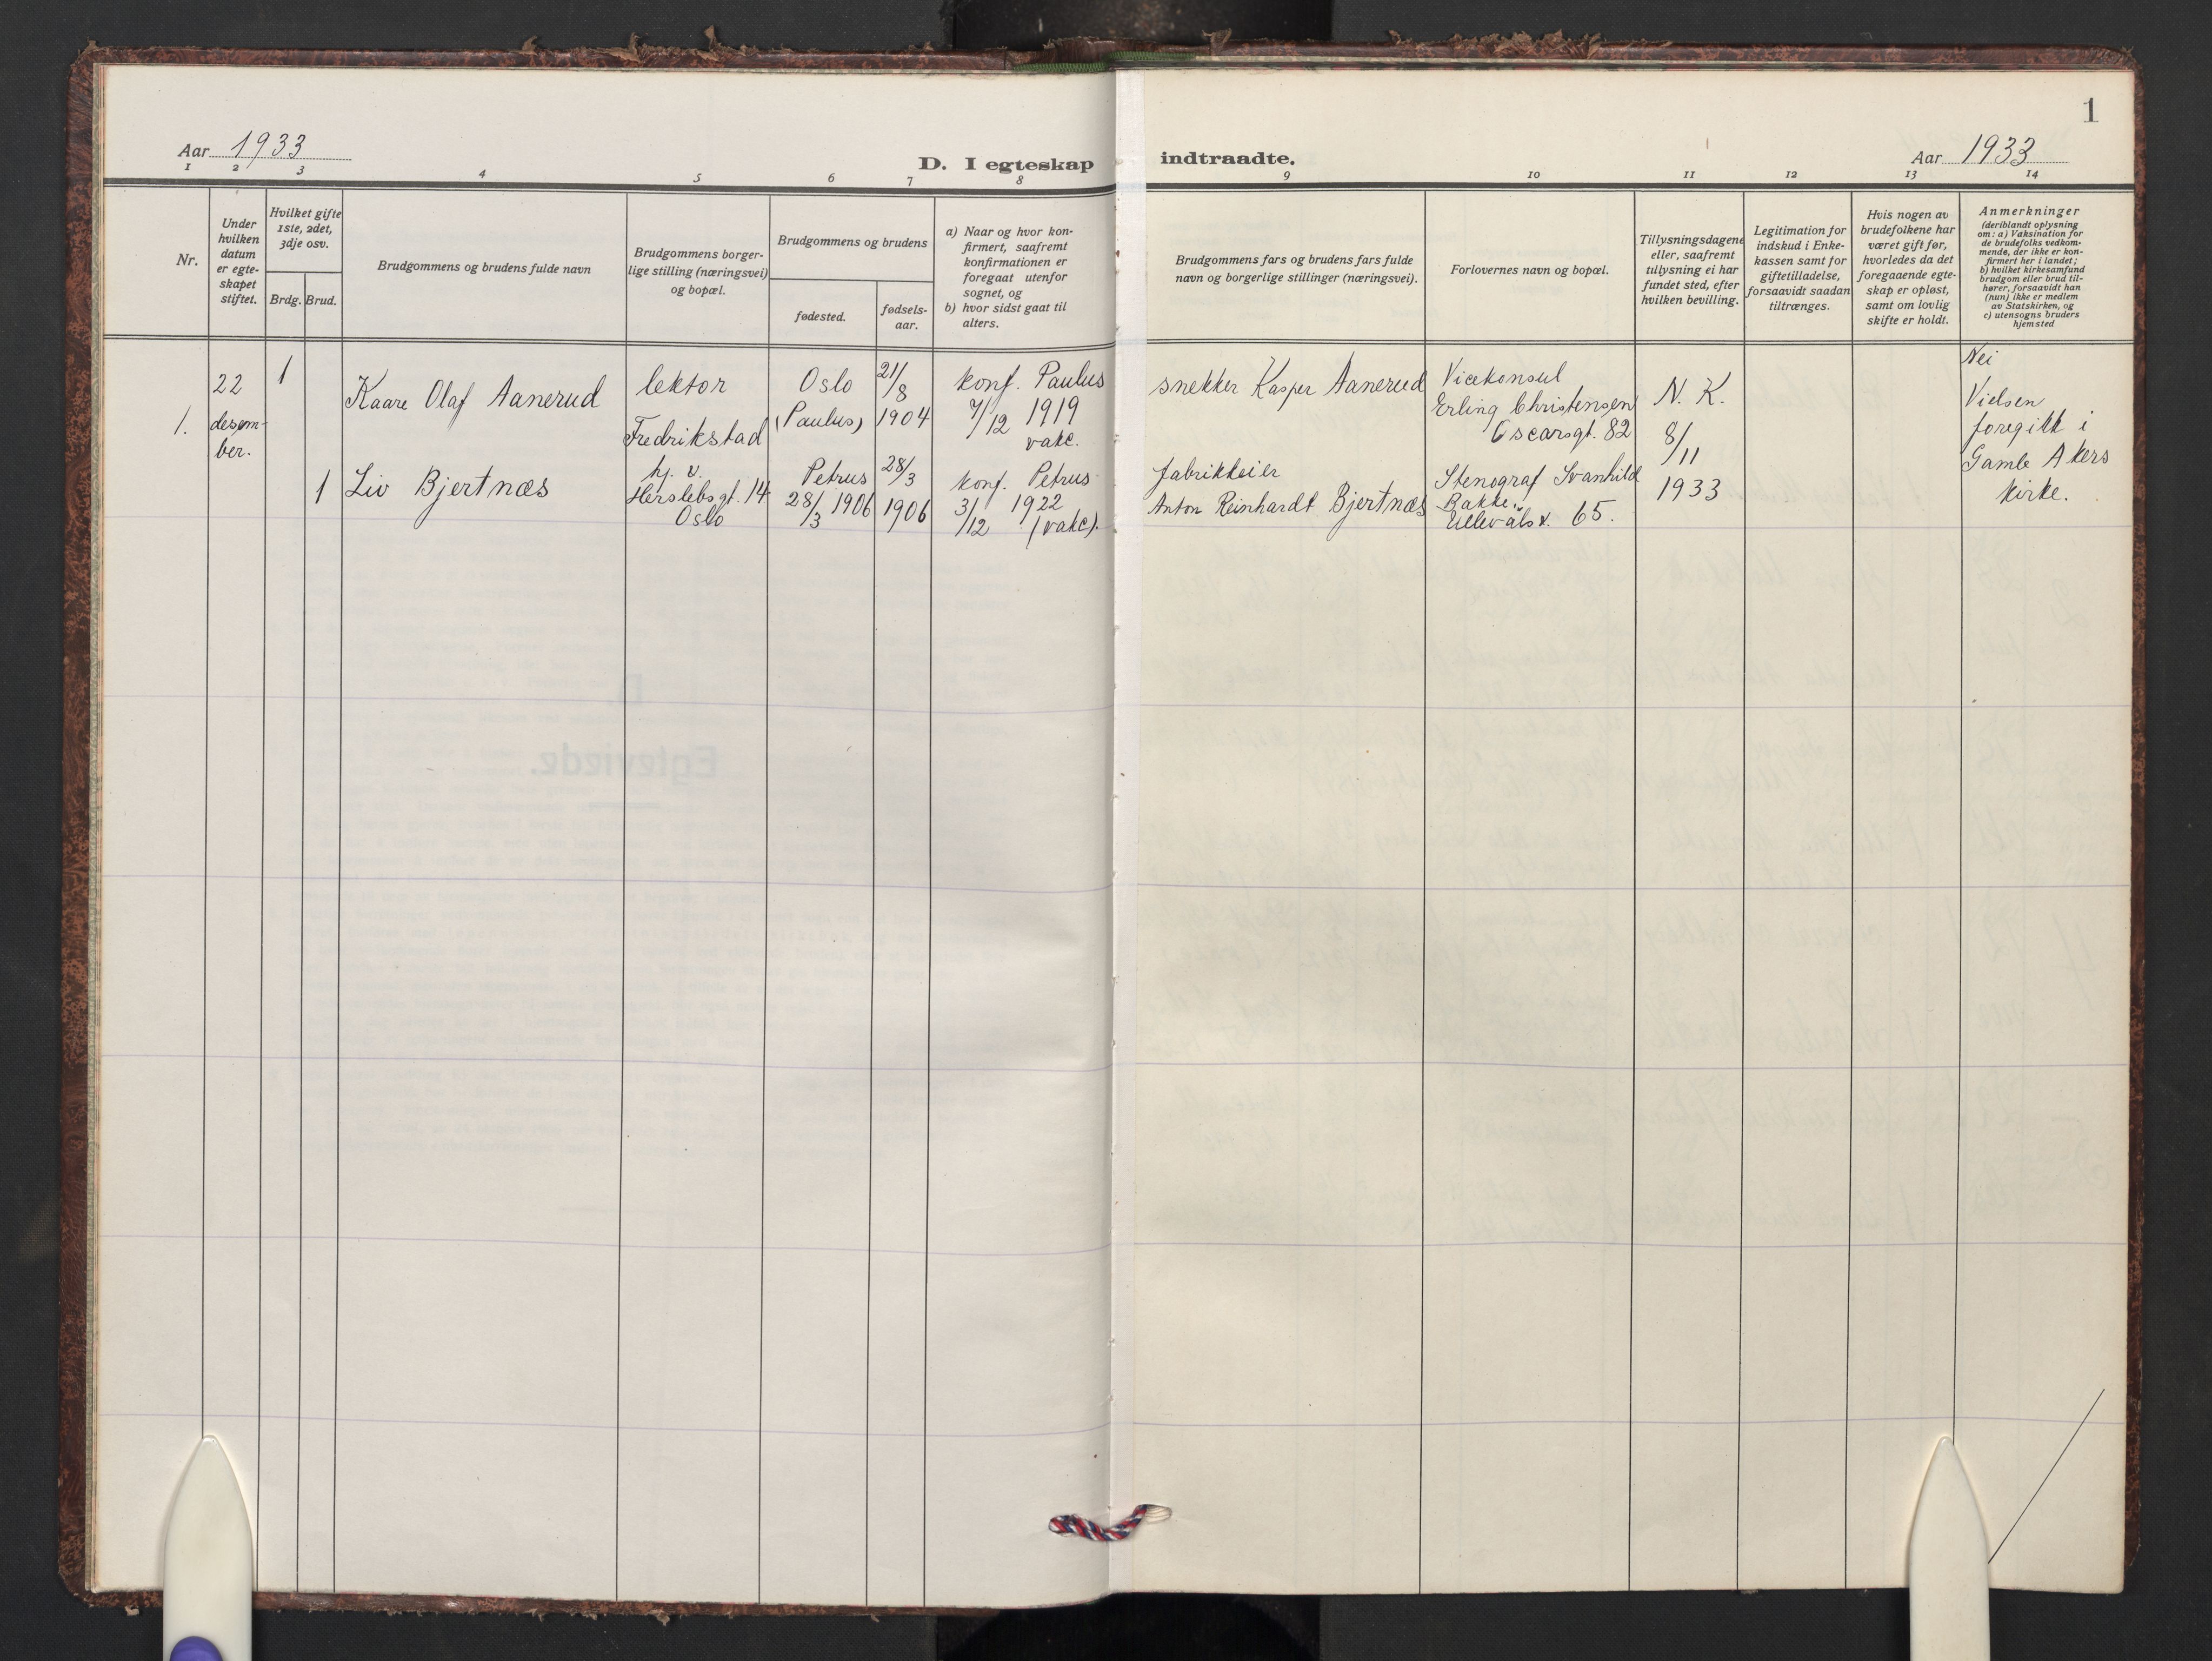 1
Aar 1933
D. I egteskap indtraadte.
Aar 1933
1 2 3 4 5 6 7 8 9 10 11 12 13 14
Nr.
Under
hvilken
datum
er egte-
skapet
stiftet.
Hvilket gifte
1ste, 2det,
3dje osv.
Brdg. Brud.
Brudgommens og brudens fulde navn
Brudgommens borger-
lige stilling (næringsvei)
og bopæl.
Brudgommens og brudens
fødested.
fødsels-
aar.
a) Naar og hvor kon-
firmert, saafremt
konfirmationen er
foregaat utenfor
sognet, og
b) hvor sidst gaat til
alters.
Brudgommens fars og brudens fars fulde
navn og borgerlige stillinger (næringsvei).
Forlovernes navn og bopæl.
Tillysningsdagene
eller, saafremt
tillysning ei har
fundet sted, efter
hvilken bevilling.
Legitimation for
indskud i Enke-
kassen samt for
giftetilladelse,
forsaavidt saadan
tiltrænges.
Hvis nogen av
brudefolkene har
været gift før,
hvorledes da det
foregaaende egte-
skap er opløst,
samt om lovlig
skifte er holdt.
Anmerkninger
(deriblandt oplysning
om: a) Vaksination for
de brudefolks vedkom-
mende, der ikke er kon-
firmert her i landet;
b) hvilket kirkesamfund
brudgom eller brud til-
hører, forsaavidt han
(hun) ikke er medlem
av Statskirken, og
c) utensogns bruders
hjemsted
1.
22
desem-
ber.
1
Kaare Olaf Aanerud
lektor
Fredrikstad
Oslo
(Paulus)
21/8
1904
konf. Paulus
7/12 1919
vakc.
snekker Kasper Aanerud
Vicekonsul
Erling Christensen
Oscarsgt. 82
N. K.
8/11
1933
Nei
Vielsen
foregikk i
Gamle Akers
kirke.
1
Liv Bjertnæs
hj. v.
Herslebsgt. 14
Oslo
Petrus
28/3 1906
28/3
1906
konf. Petrus
3/12 1922
(vakc).
fabrikkeier
Anton Reinhardt Bjertnæs
Stenograf Svanhild
Bakke
Ullevålsv. 65.